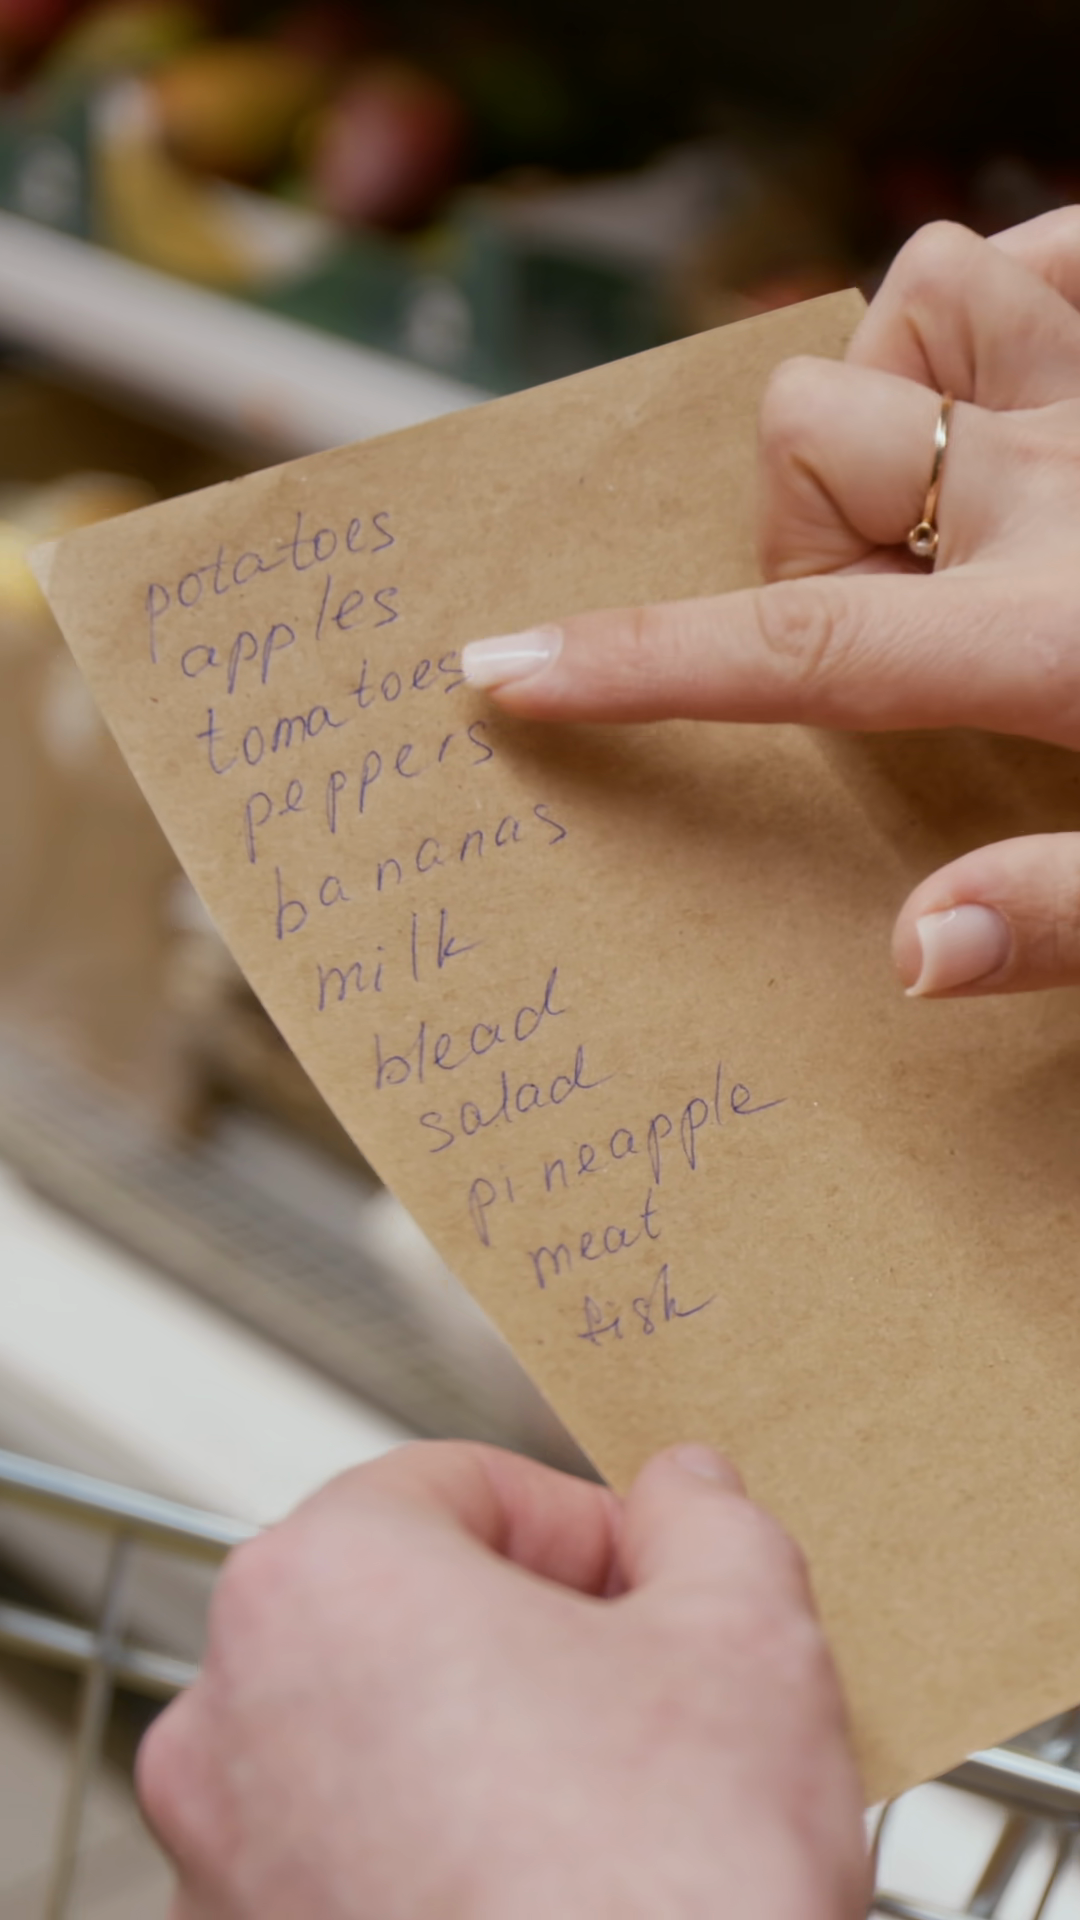 potatoes
apples
tomatoes
peppers
bananas
milk
blead
salad
pineapple
meat
fish